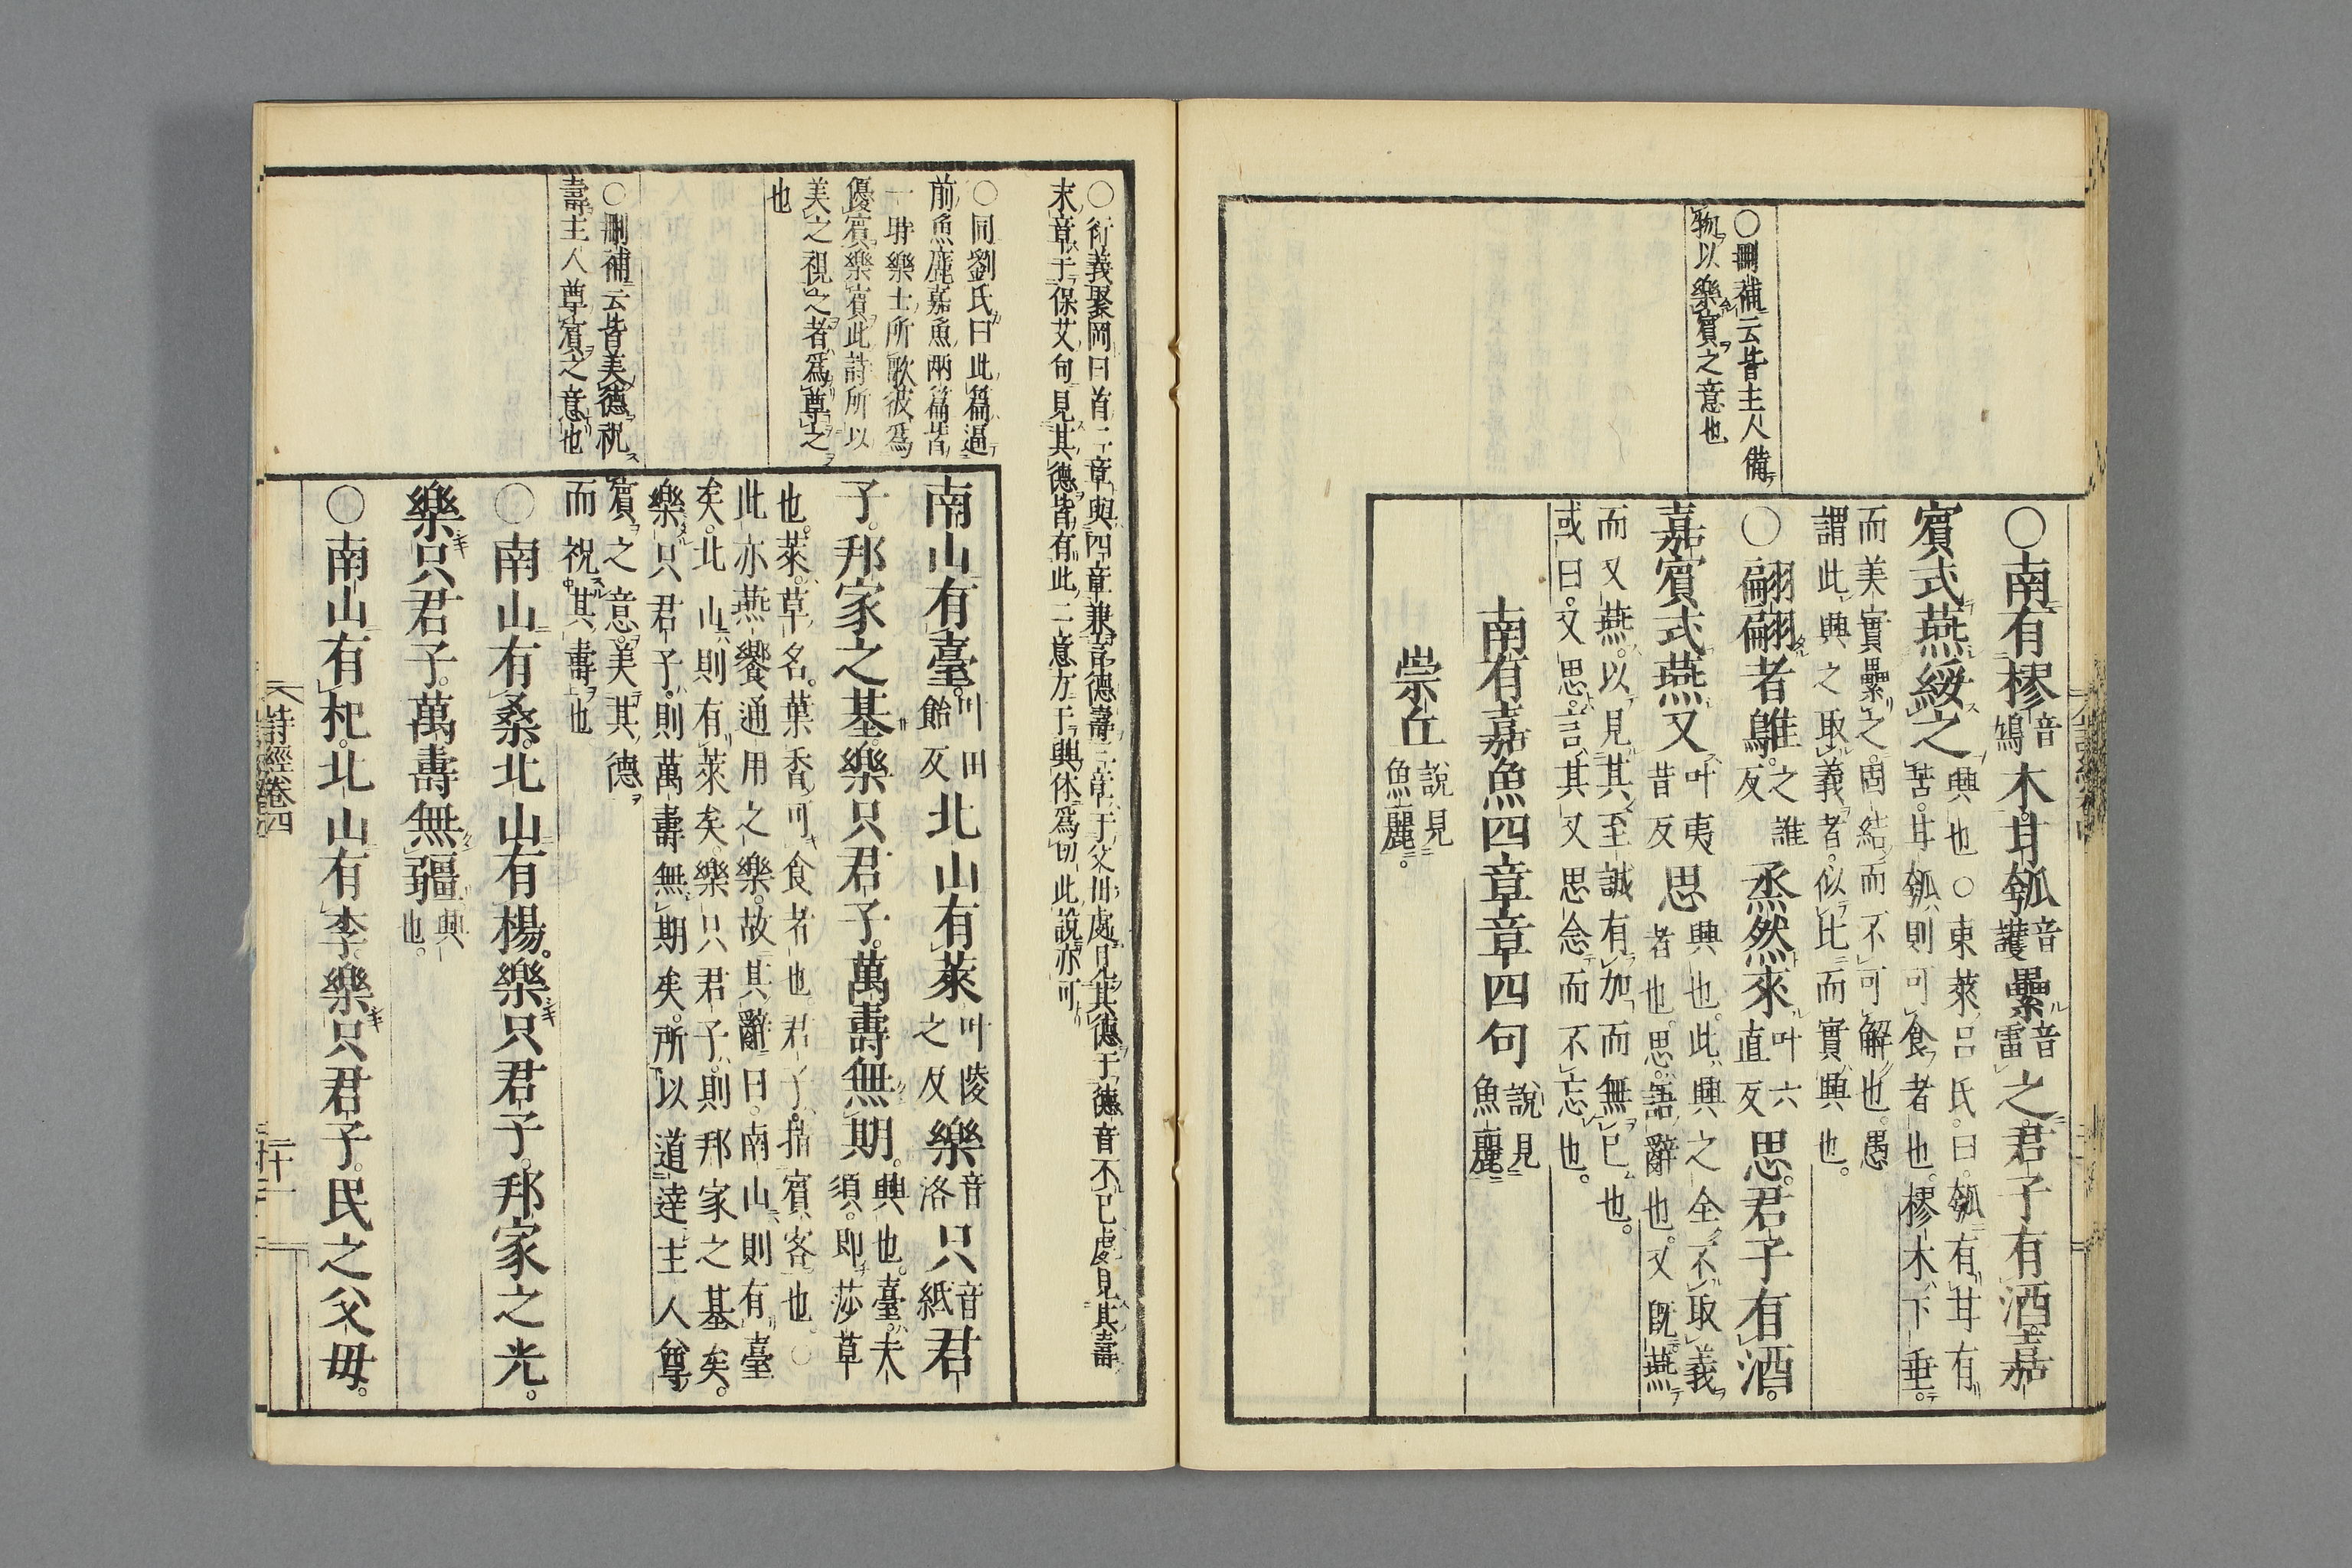 ○刪補云皆主人備
物以樂賓之意也
○南有樛音鳩木甘瓠音護纍音雷之君子有酒嘉
賓式燕綏之興也○東萊呂氏曰瓠有甘有
苦甘瓠則可食者也樛木下垂
而美實纍之固結而不可解也愚
謂此興之取義者似比而實興也
○翩翩者鵻之誰反烝然來叶六直反思君子有酒
嘉賓式燕又叶夷昔反思興也此興之全不取義
者也思語辭也又既燕
而又燕以見其至誠有加而無已也
或曰又思言其又思念而不忘也
南有嘉魚四章章四句說見魚麗
崇丘說見魚麗
○衍義聚岡曰首二章與四章兼言德壽三章于父母處見其德于德音不已處見其壽
末章于保艾句見其德皆有此二意方于興体爲切此說亦可
○同劉氏曰此篇過
前魚麗嘉魚兩篇皆
一時樂士所歌彼爲
優賓樂賓此詩所以
美之祝之者爲尊之
也
○刪補云皆美德祝
壽主人尊賓之意也
南山有臺叶田飴反北山有萊叶陵之反樂音洛只音紙君
子邦家之基樂只君子萬壽無期興也臺夫須即莎草
也萊草名葉香可食者也君子指賓客也○
此亦燕饗通用之樂故其辭曰南山則有臺
矣北山則有萊矣樂只君子則邦家之基矣
樂只君子則萬壽無期矣所以道達主人尊
賓之意美其德
而祝其壽也
○南山有桑北山有楊樂只君子邦家之光
樂只君子萬壽無疆興也
○南山有杞北山有李樂只君子民之父母
詩經卷四